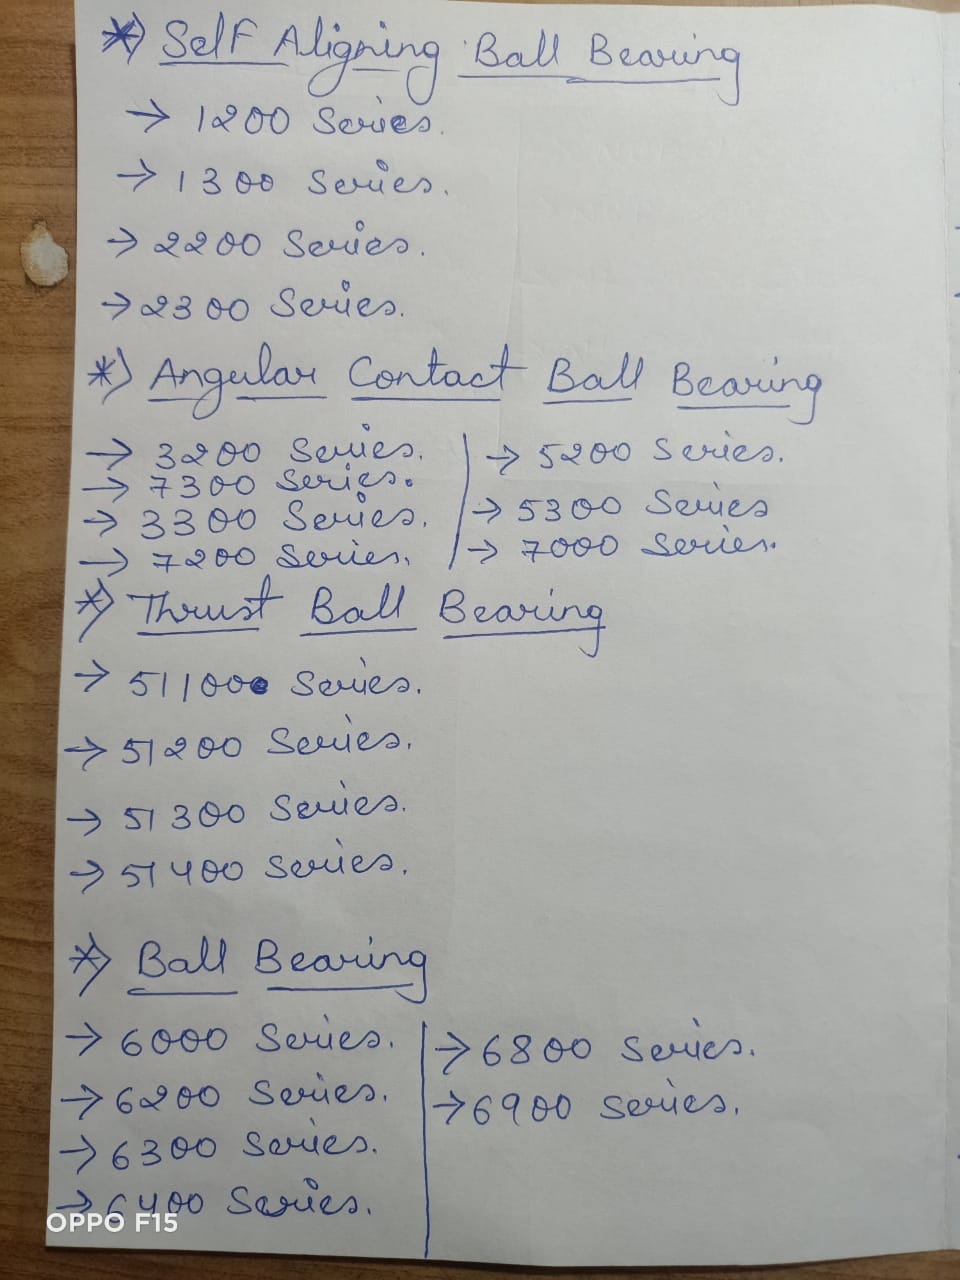 *) Self Aligning Ball Bearing
→ 1200 Series.
→ 1300 Series.
→ 2200 Series.
→ 2300 Series.
*) Angular Contact Ball Bearing
→ 3200 Series.
→ 7300 Series.
→ 3300 Series.
→ 7200 Series.
→ 5200 Series.
→ 5300 Series
→ 7000 Series.
*) Thrust Ball Bearing
→ 51100 Series.
→ 51200 Series.
→ 51300 Series.
→ 51400 Series.
*) Ball Bearing
→ 6000 Series.
→ 6200 Series.
→ 6300 Series.
→ 6400 Series.
→ 6800 Series.
→ 6900 Series.
OPPO F15